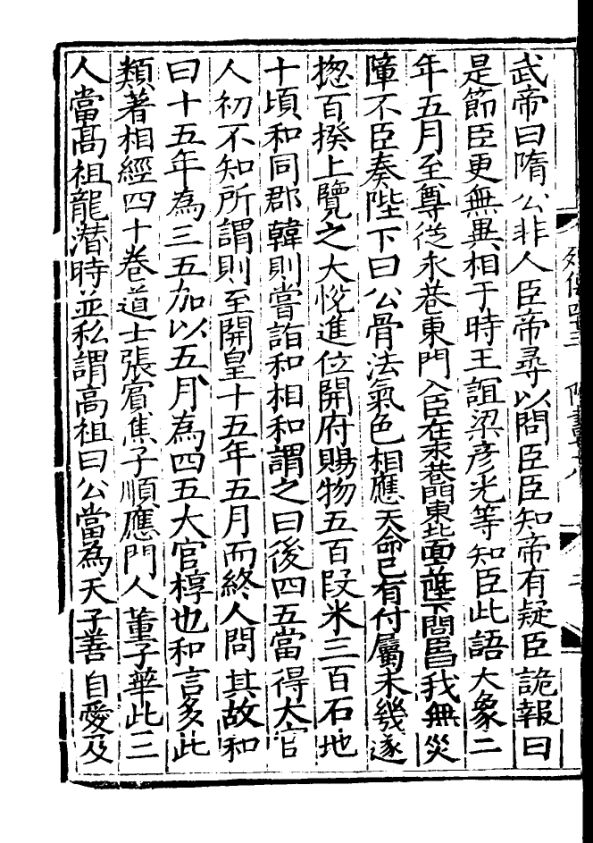 武帝曰隋公非人臣帝尋以問臣臣知帝有疑臣詭報曰
是節臣更無異相于時王誼梁彦光等知臣此語大象二
年五月至尊從永巷東門入臣在永巷門東北面立陛下問臣曰我無災
障不臣奏陛下曰公骨法氣色相應天命已有付屬未幾遂
揔百揆上覽之大悅進位開府賜物五百段米三百石地
十頃和同郡韓則嘗詣和相和謂之曰後四五當得大官
人初不知所謂則至開皇十五年五月而終人問其故和
曰十五年為三五加以五月為四五大官椁也和言多此
類著相經四十卷道士張賔焦子順應門人董子華此三
人當高祖龍潜時並私謂高祖曰公當為天子善自愛及